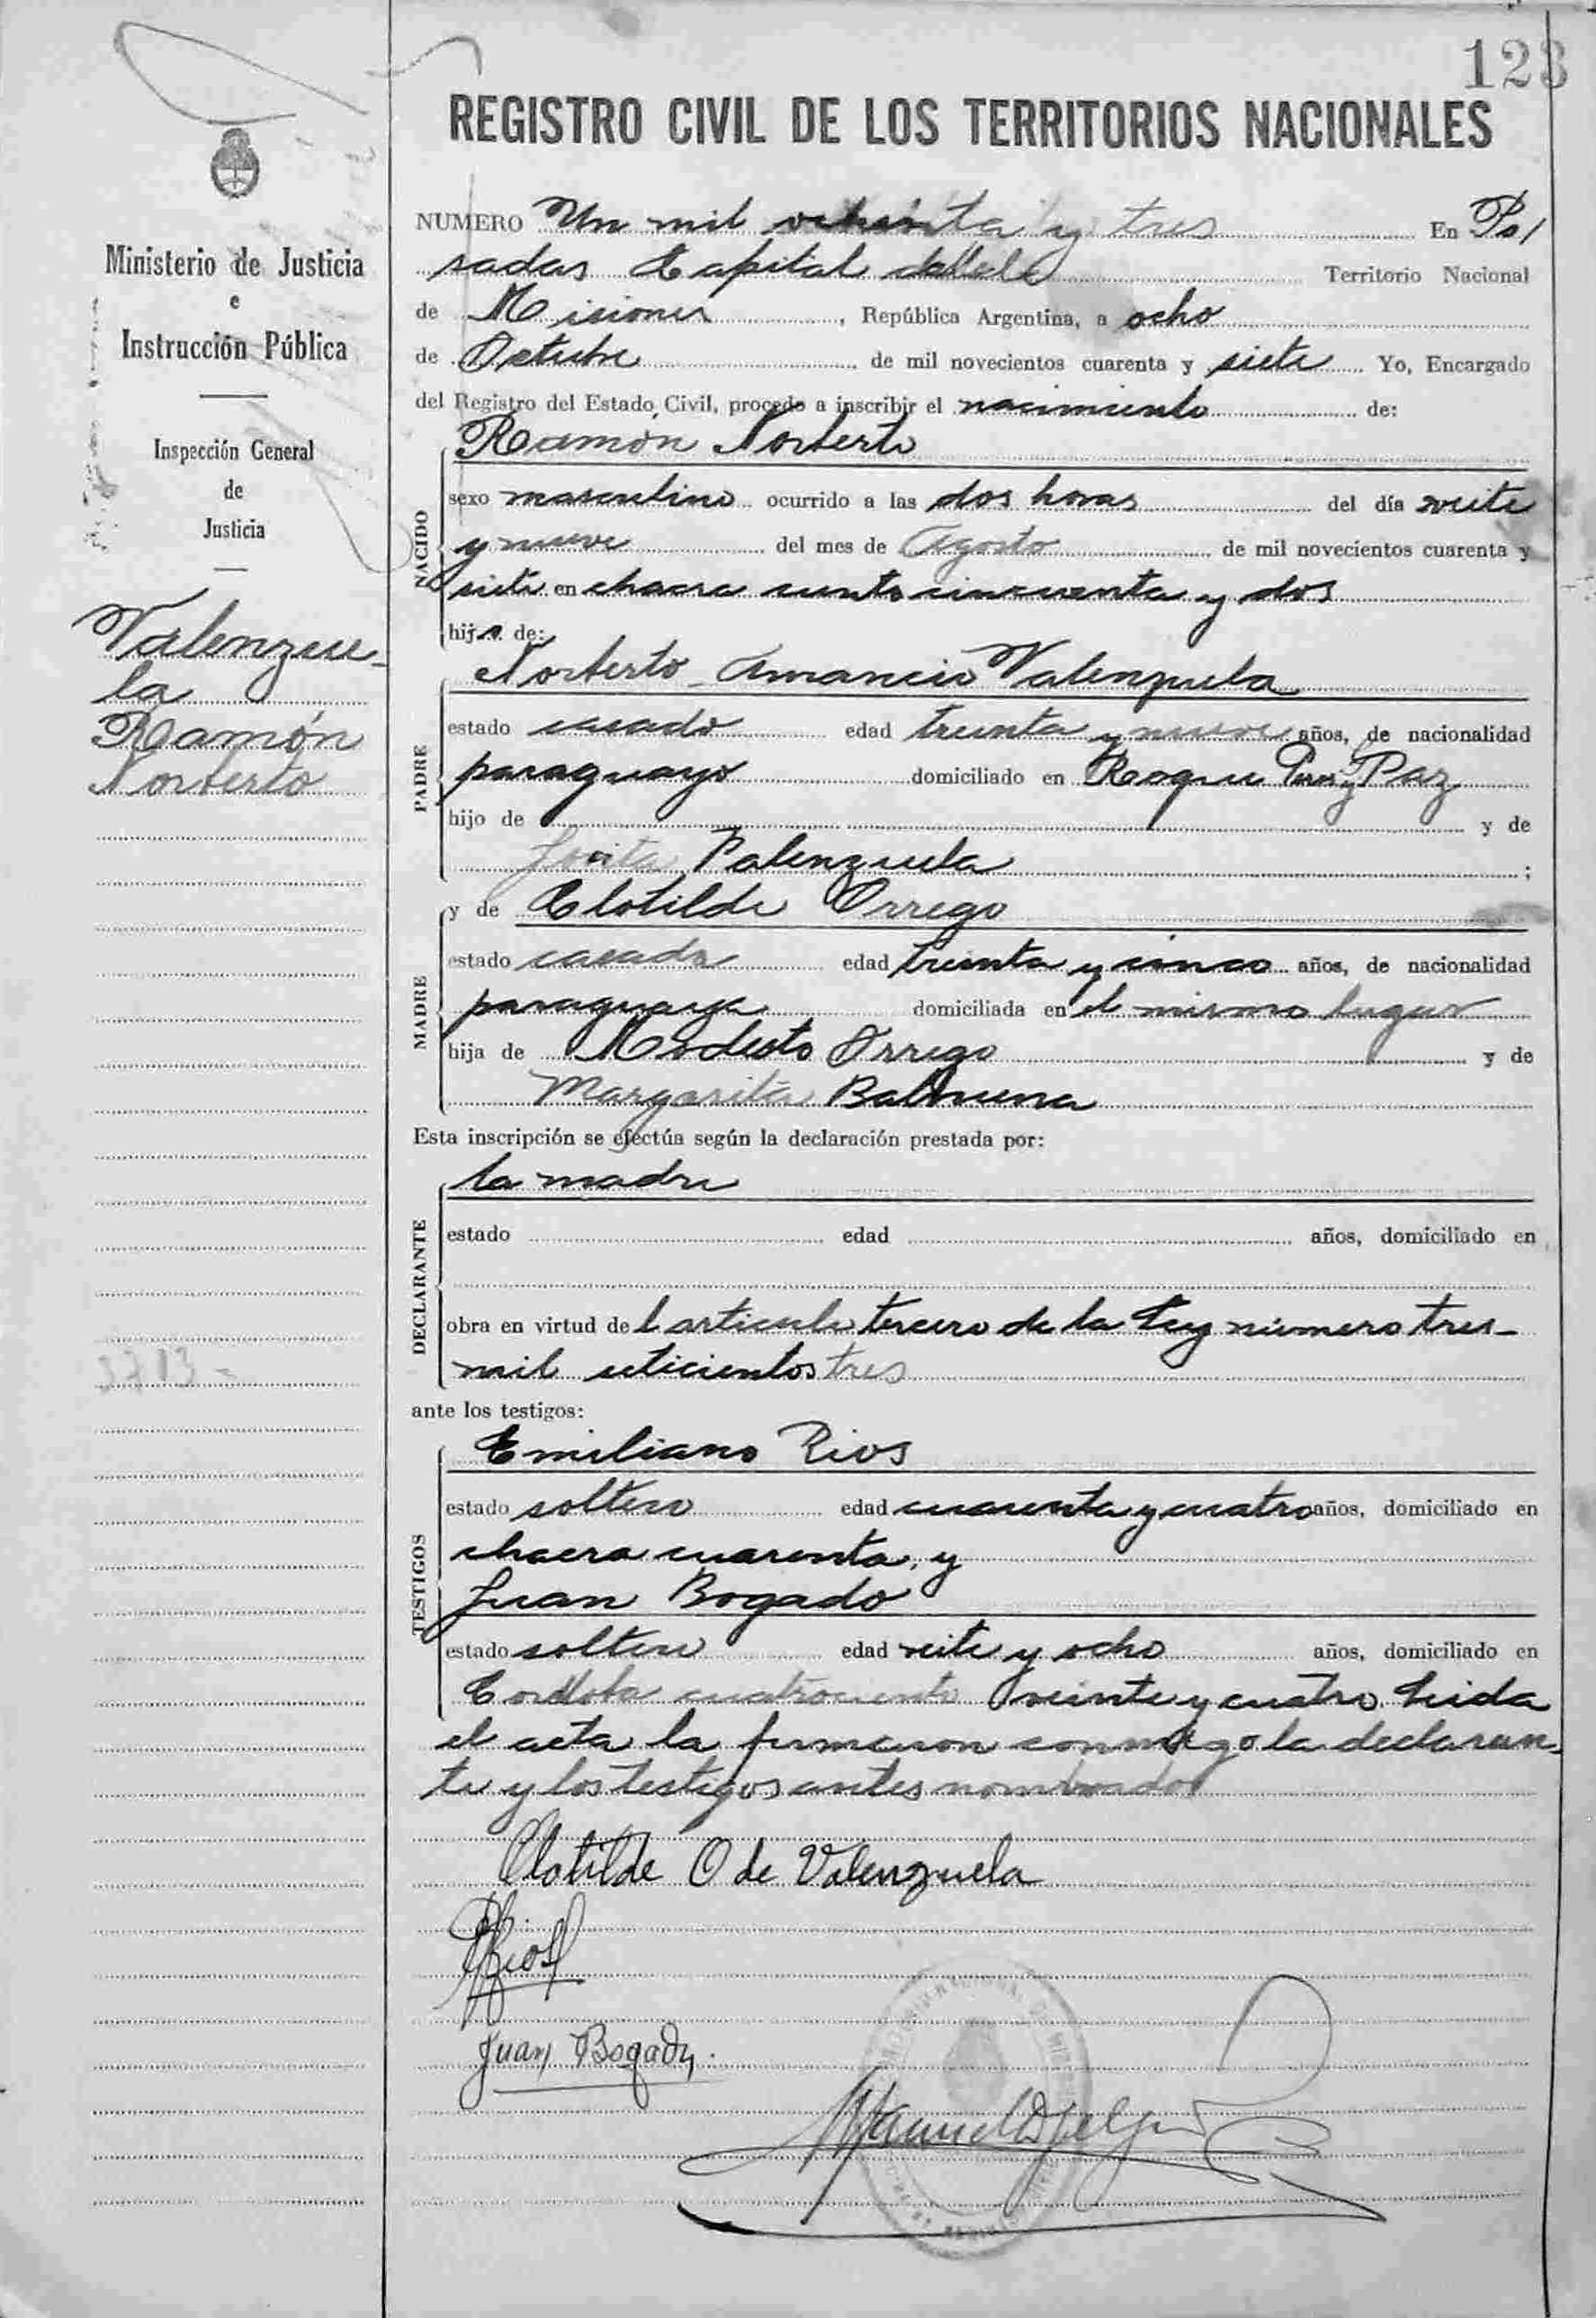 123
REGISTRO CIVIL DE LOS TERRITORIOS NACIONALES
Ministerio de Justicia
e
Instrucción Pública
Inspección General
de
Justicia
Valenzue-
la
Ramón
Norberto
3713-
NUMERO Un mil ochenta y tres En Po/
sadas Capital del Territorio Nacional
de Misiones, República Argentina, a ocho
de Octubre de mil novecientos cuarenta y siete Yo, Encargado
del Registro del Estado Civil, procedo a inscribir el nacimiento de:
Ramón Norberto
NACIDO
sexo masculino ocurrido a las dos horas del día veite
y nueve del mes de Agosto de mil novecientos cuarenta y
siete en chacra ciento cincuenta y dos
hijo de:
Norberto Amancio Valenzuela
PADRE
estado casado edad treinta y nueve años, de nacionalidad
paraguayo domiciliado en Roque Perez y Paz
hijo de y de
Jovita Valenzuela ;
y de Clotilde Orrego
MADRE
estado casada edad treinta y cinco años, de nacionalidad
paraguaya domiciliada en el mismo lugar
hija de Modesto Orrego y de
Margarita Balbuena
Esta inscripción se efectúa según la declaración prestada por:
la madre
DECLARANTE
estado edad años, domiciliado en
obra en virtud del articulo tercero de la Ley número tres-
mil seticientos tres
ante los testigos:
Emiliano Rios
TESTIGOS
estado soltero edad cuarenta y cuatro años, domiciliado en
chacra cuarenta, y
Juan Bogado
estado soltero edad veite y ocho años, domiciliado en
Cordoba cuatrociento veinte y cuatro. Leida
el acta la firmaron conmigo la declaran-
te y los testigos antes nombrados
Clotilde O de Valenzuela
ERios
Juan Bogado.